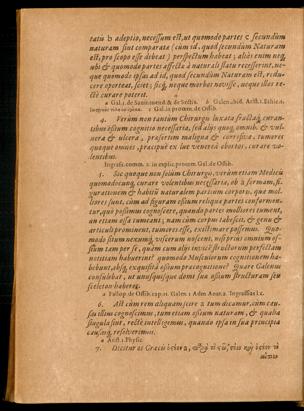 tatis b adeptio, necessum est, ut quomodo partes c secundum
naturam sint comparatæ (cùm id, quod secundum Naturam
est, pro scopo esse debeat) perspectum habeat; aliàs enim neq;
ubi & quomodo partes affectæ à naturali statu recesserint, ne-
que quomodo ipsas ad id, quod secundum Naturam est, redu-
cere oporteat, sciet; sicq; neque morbos novisse, neque illos re-
ctè curare poterit.
a Gal. de Sectis. b Galen. Arist. 1. Ethic.
c Gal. in proœm. de Ossib.
4. Verùm non tantùm Chirurgo luxata fractaq; curan-
ti hæc ossium cognitio necessaria, sed aliis quoq; omnib. & vul-
nera & ulcera, præsertim maligna & corrosiva, tumores
quoque omnes, præcipuè ex lue venerea obortos, curare vo-
lentibus.
Ingrass. comm. 2. in explic. proœm. Gal. de Ossib.
5. Sec quoque non solùm Chirurgo, verùm etiam Medico
quomodocunq; curare volenti necessaria, ob a formam, fi-
gurationem & habitû naturalem partium corporis, quæ mol-
liores sunt, cùm ad figuram ossium reliquæ partes conformen-
tur, quò possimus cognoscere, quando partes molliores tument,
an etiam ossa tumeant; nam cùm corpus tabescit, & genu &
articuli prominent, tumores esse, existimare possemus. Quo-
modo situm nexumq; viscerum nosceret, nisi prius omnium os-
sium tam per se, quàm cum aliis vicinis structuram perfectam
notitiam habuerint? quomodo Musculorum cognitionem ha-
bebunt, absq; exquisita ossium præcognitione? Quare Galenus
consulebat, ut unusquisque domi suæ ossium structuram seu
sceleton haberet.
a Fallop. de Ossib. cap. 11. Galen. 1. Adm. Anat. 2. Ingrassias l. c.
6. At cùm rem aliquam scire a tum dicamur, cùm cau-
sas illius cognoscimus, tum etiam ossium naturam, & qualia
singula sint, rectè intelligemus, quando ipsa in sua principia
causasq; resolverimus.
a Arist. 1. Physic.
7. Dicitur os Græcis